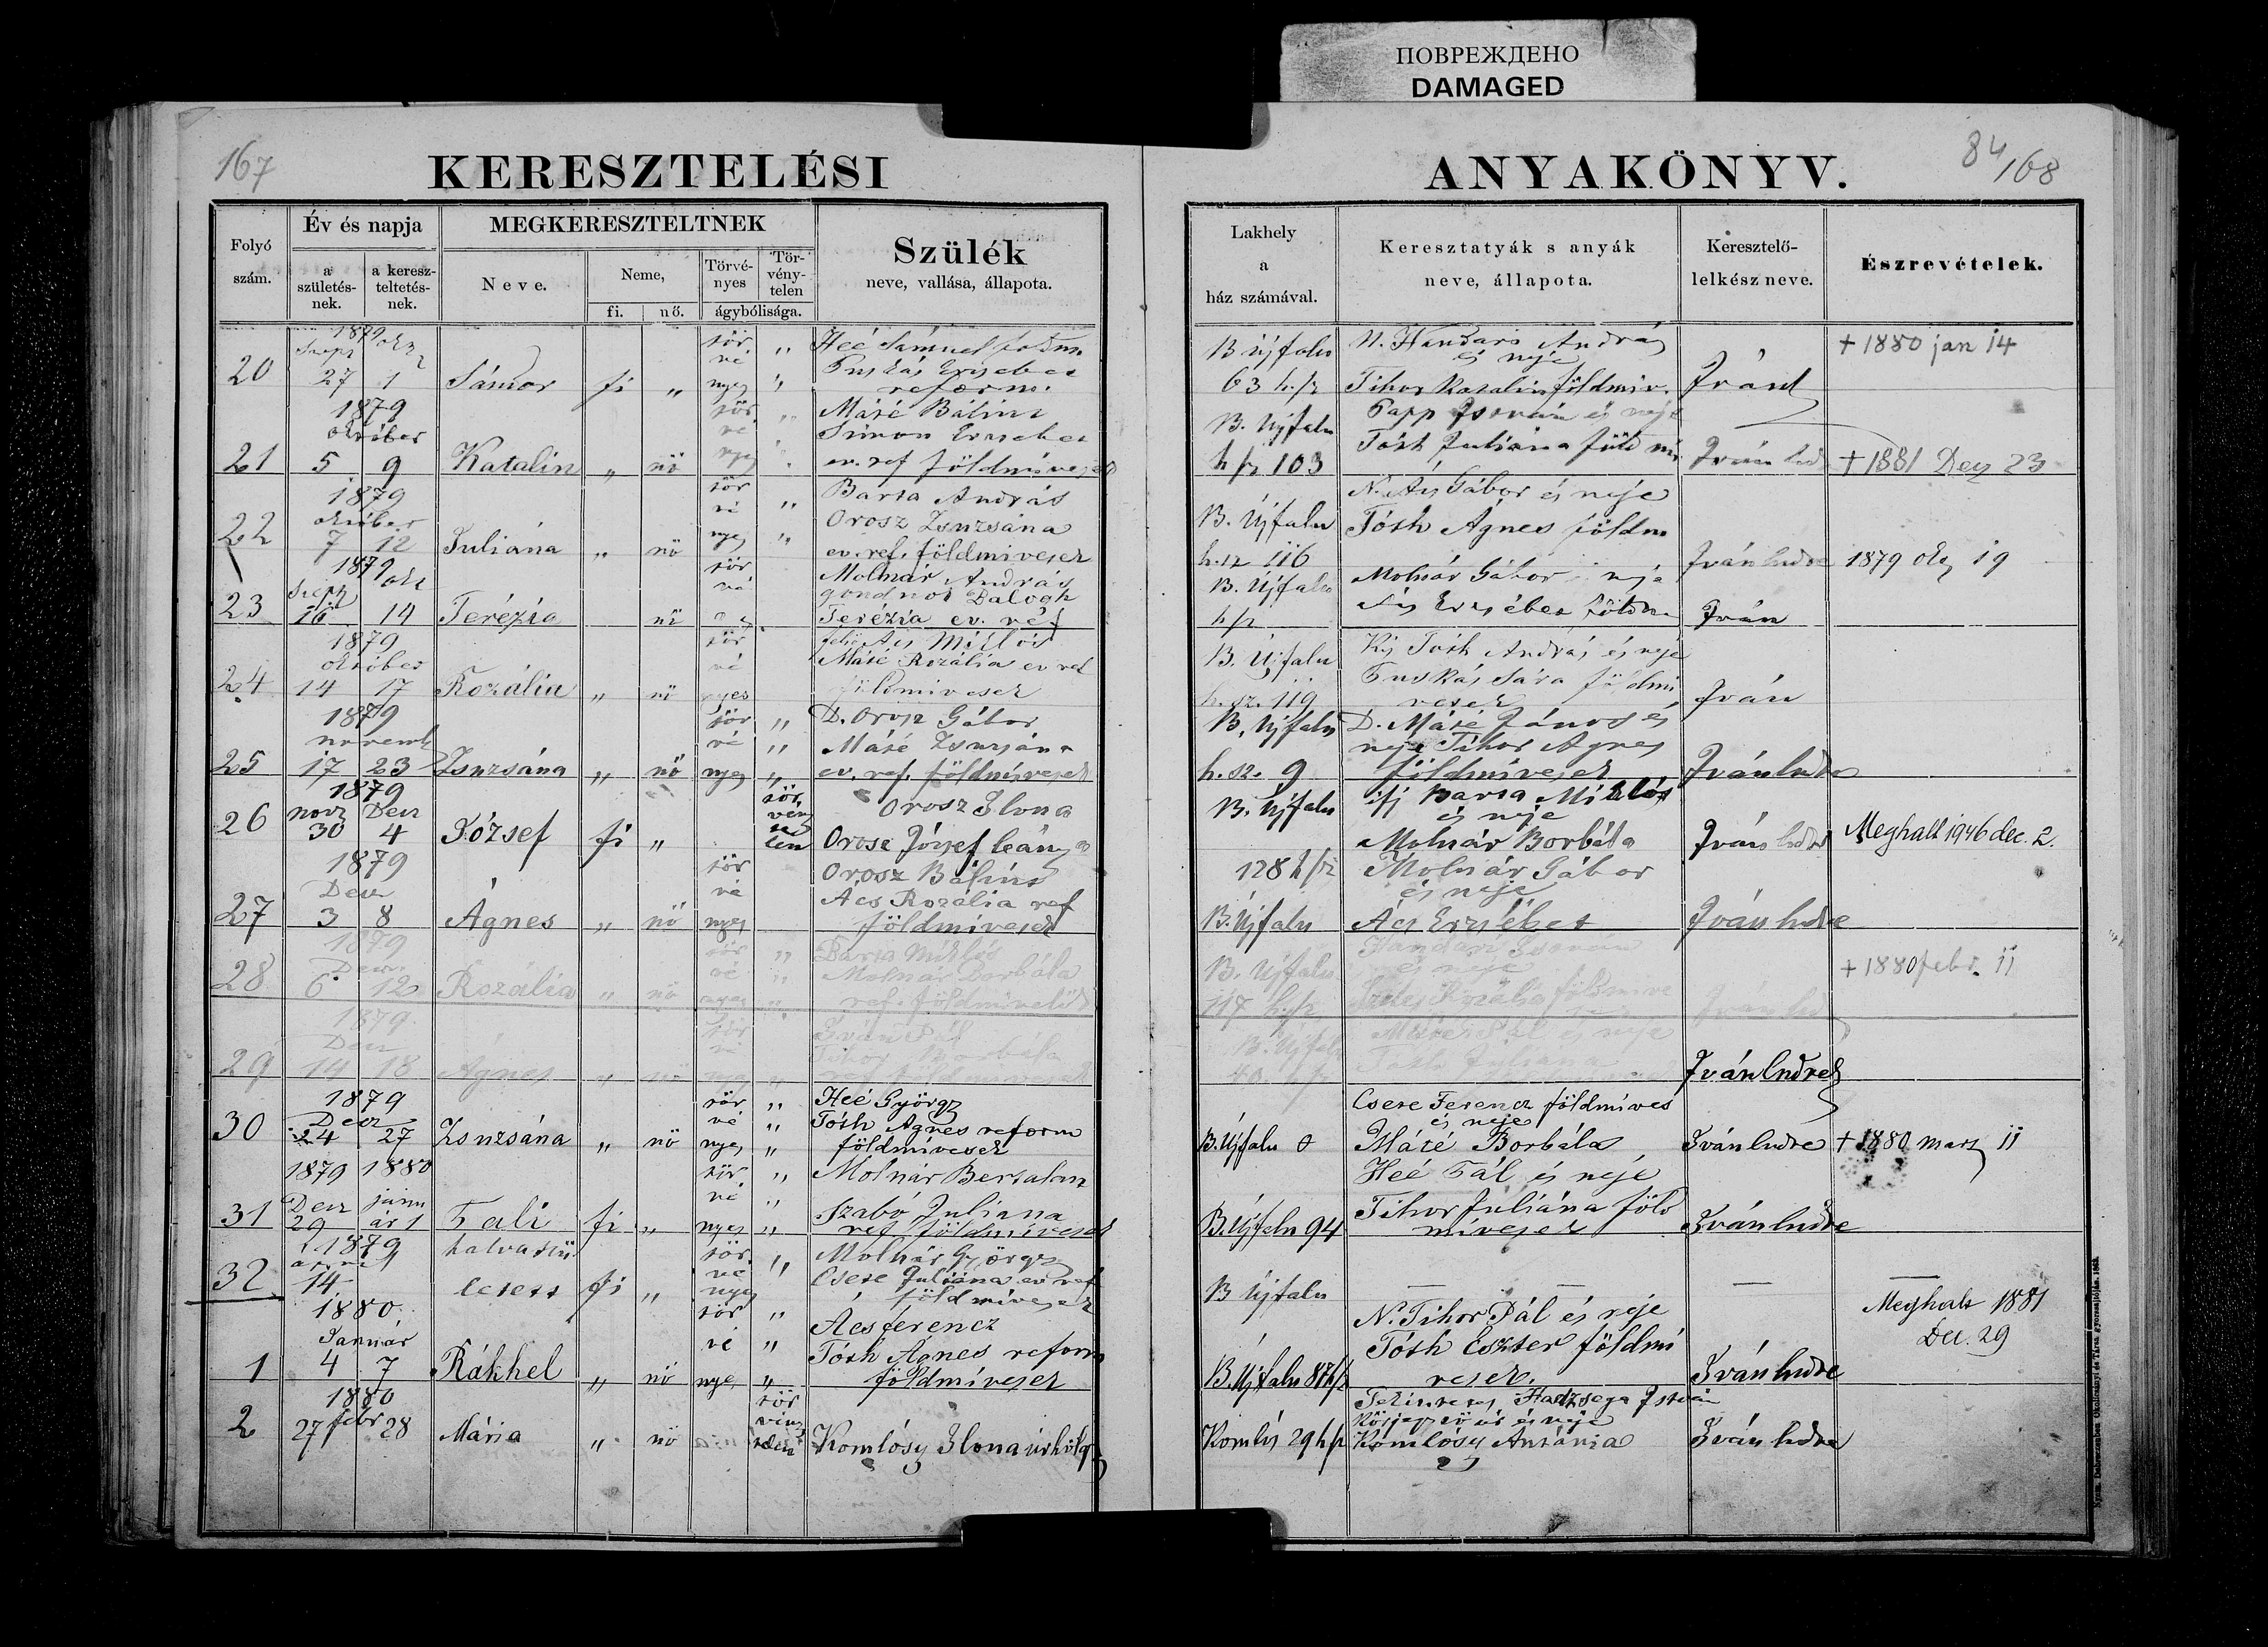 ПОВРЕЖДЕНО
DAMAGED
167
KERESZTELÉSI
ANYAKÖNYV.
84/168
Folyó szám.
Év és napja
a születés-nek.
a keresz-teltetés-nek.
MEGKERESZTELTNEK
Neve.
Neme,
fi.
nő.
Törvé-nyes
Tör-vény-telen
ágybólisága.
Szülék
neve, vallása, állapota.
Lakhely
a
ház számával.
Keresztatyák s anyák
neve, állapota.
Keresztelő-
lelkész neve.
Észrevételek.
1879
20 27 1 Sándor fi „ tör vé nyes „
Heé Sámuel földm
Puskás Erzsébet
reform.
B Újfalu
63 h.sz
N. Handari András
és neje
Tihor Katalin földmiv.
Iván
+ 1880 jan 14
1879
október
21 5 9 Katalin „ nö tör vé nyes
Máté Bálint
Simon Erzsébet
ev. ref földmivesek
B. Újfalu
h sz 103
Papp István és neje
Tóth Juliána föld mi
Iván
+ 1881 Dez 23
1879
október
22 7 12 Juliána „ nö tör vé nyes „
Barta András
Orosz Zsuzsána
ev. ref. földmivesek
B. Újfalu
h.sz 116
N. Ács Gábor és neje
Tóth Ágnes földm
Iván Endre
1879 okt 19
1879
23 16 14 Terézia nö tör vé
Molnár András
gondnok Balogh
Terézia ev. réf
B. Újfalu
h/sz
Molnár Gábor neje
Ács Erzsébet földm
Iván
1879
október
24 14 17 Rozália „ nö tör vé nyes
Ács Miklós
Máté Rozália ev ref
földmivesek
B. Újfalu
h. sz. 119
Kis Tóth András és neje
Puskás Sára földmi
vesek
Iván
1879
novemb
25 17 23 Zsuzsána „ nö tör vé nyes „
D. Orosz Gábor
Máté Zsuzsána
ev. ref. földmivesek
B. Újfalu
h. sz. 9
D. Máté János és
neje Tihor Ágnes
földmivesek
Iván Endre
1879
nov Dec
26 30 4 József fi „ tör vény te len
Orosz Ilona
Orosz József leánya
B. Újfalu
128 h/sz
ifj Barta Miklós
és neje
Molnár Borbála
Iván Endre
Meghalt 1946 dec. 2.
1879
Dec
27 3 8 Ágnes „ nö tör vé nyes
Orosz Bálint
Ács Rozália ref
földmivesek
B. Újfalu
Molnár Gábor
és neje
Ács Erzsébet
Iván Endre
1879
Dec
28 6 12 Rozália „ nö tör vé nyes „
Barta Miklós
Molnár Borbála
ref. földmivelök
B. Újfalu
117 h.sz
Handari István
és neje
Rozália földmive
+ 1880 febr. 11
1879
Dec
29 14 18 Ágnes „ nö tör vé nyes „
Iván Pál
Tihor Borbála
B. Újfalu
Máté Pál és neje
Tóth Juliána
Iván Endre
1879
Dec
30 24 27 Zsuzsána „ nö tör vé nyes „
Heé György
Tóth Ágnes reform
földmivesek
B. Újfalu
Csere Ferencz földmives
és neje
Máté Borbála
Iván Endre
+ 1880 marz 11
1879 1880
Dec janu
31 29 ár 1 Pali fi „ tör vé nyes „
Molnár Bertalan
Szabó Juliana
ref földmivesek
B. Újfalu 94
Heé Pál és neje
Tihor Juliána föld
mivesek
Iván Endre
1879
32 14 halva szü
fi „ tör vé nyes „
Molnár György
Csere Juliána ev ref
földmivesek
B Újfalu
— — — —
1880
Január
1 4 7 Rákhel „ nö tör vé nyes „
Ács ferencz
Tóth Ágnes reform
földmivesek
B. Újfalu 87 h/sz
N. Tihor Pál és neje
Tóth Eszter földmi
vesek.
Iván Endre
Meghalt 1881
Dec. 29
1880
2 27 febr 28 Mária „ nö tör vény telen
Komlósy Ilona úrhölgy
Komlós 29 h/sz
Hadzsega István
körjegyző úr és neje
Komlósy Antónia
Iván Endre